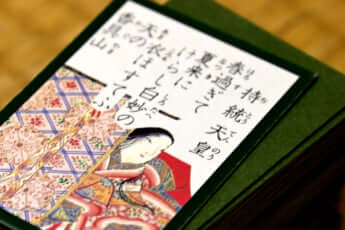 持統天皇
春過ぎて
夏来に
けらし白妙の
衣ほすてふ
天の
香具山